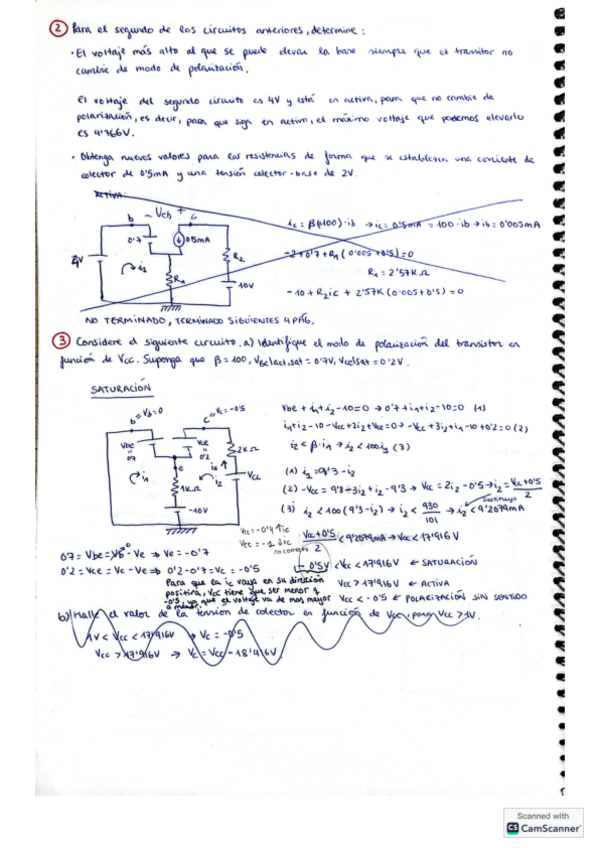 ② Para el segundo de los circuitos anteriores, determine:
· El voltaje más alto al que se puede elevar la base siempre que el transitor no
cambie de modo de polarización.
El voltaje del segundo circuito es 4V y está en activa, para que no cambie de
polarización, es decir, para que siga en activa, el máximo voltaje que podemos elevarlo
es 4'766V.
· Obtenga nuevos valores para las resistencias de forma que se establezca una corriente de
colector de 0'5mA y una tensión colector-base de 2V.
ACTIVA:
b - Vcb + c
0'7
0.5mA
R2
4V
i2
R1
10V
ic = β(+100)·ib → ic = 0'5mA = 100·ib → ib = 0'005mA
-2+0'7+R1(0'005+0'5)=0
R1 = 2'57KΩ
-10+R2ic + 2'57K(0'005+0'5)=0
NO TERMINADO, TERMINADO SIGUIENTES 4 PÁG.
③ Considere el siguiente circuito. a) Identifique el modo de polarización del transistor en
función de Vcc. Suponga que β=100, Vbe|act,sat = 0'7V, Vce|sat = 0'2V.
SATURACIÓN
b Vb=0
c Vc=-0'5
Vbe
0'7
Vce
0'2
2KΩ
ic
e
i1
i2
Vcc
1KΩ
-10V
Vbe + i1+i2-10=0 → 0'7+i1+i2-10=0 (1)
i1+i2-10-Vcc+2i2+Vce=0 → -Vcc+3i2+i1-10+0'2=0 (2)
i2 < β·i1 → i2 < 100i1 (3)
(1) i1 = 9'3-i2
(2) -Vcc = 9'8-3i2+i2-9'3 → Vcc = 2i2-0'5 → i2 = Vcc+0'5 / 2
(3) i2 < 100(9'3-i2) → i2 < 930/101 → i2 < 9'2079mA
sustituyo
Vcc+0'5 / 2 < 9'2079mA → Vcc < 17'916V
0.7 = Vbe = Vb-Ve ⇒ Ve = -0'7
0'2 = Vce = Vc-Ve ⇒ 0'2-0'7 = Vc = -0'5
-0'5V < Vcc < 17'916V ← SATURACIÓN
Vcc > 17'916V ← ACTIVA
Vcc < -0'5 ← POLARIZACIÓN SIN SENTIDO
Para que la ic vaya en su dirección
positiva, Vcc tiene que ser menor q
-0'5, ya que el voltaje va de mas mayor
a menor.
b) Halle el valor de la tensión de colector en función de Vcc, para Vcc > 1V.
1V < Vcc < 17'916V → Vc = -0'5
Vcc > 17'916V → Vc = Vcc - 18'416V.
Scanned with
CS CamScanner